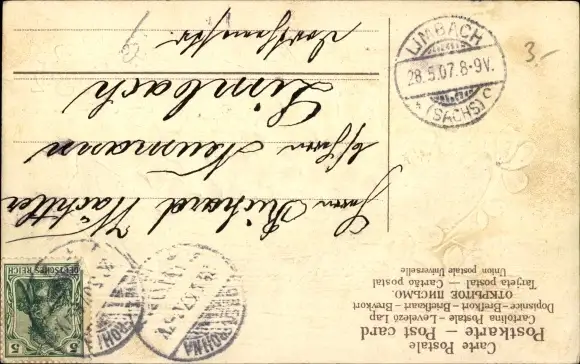 Carte Postale
Postkarte — Post card
Cartolina Postale — Levelező Lap
Dopisnice — Brefkort — Briefkaart — Brevkort
ОТКРЫТОЕ ПИСЬМО.
Tarjeta postal — Cartão postal
Union postale Universelle
DEUTSCHES REICH
5
5
Herrn Richard Wächtler
Herrn Neumann
Limbach
LIMBACH
28.5.07.8-9V.
* (SACHS) C
3.-